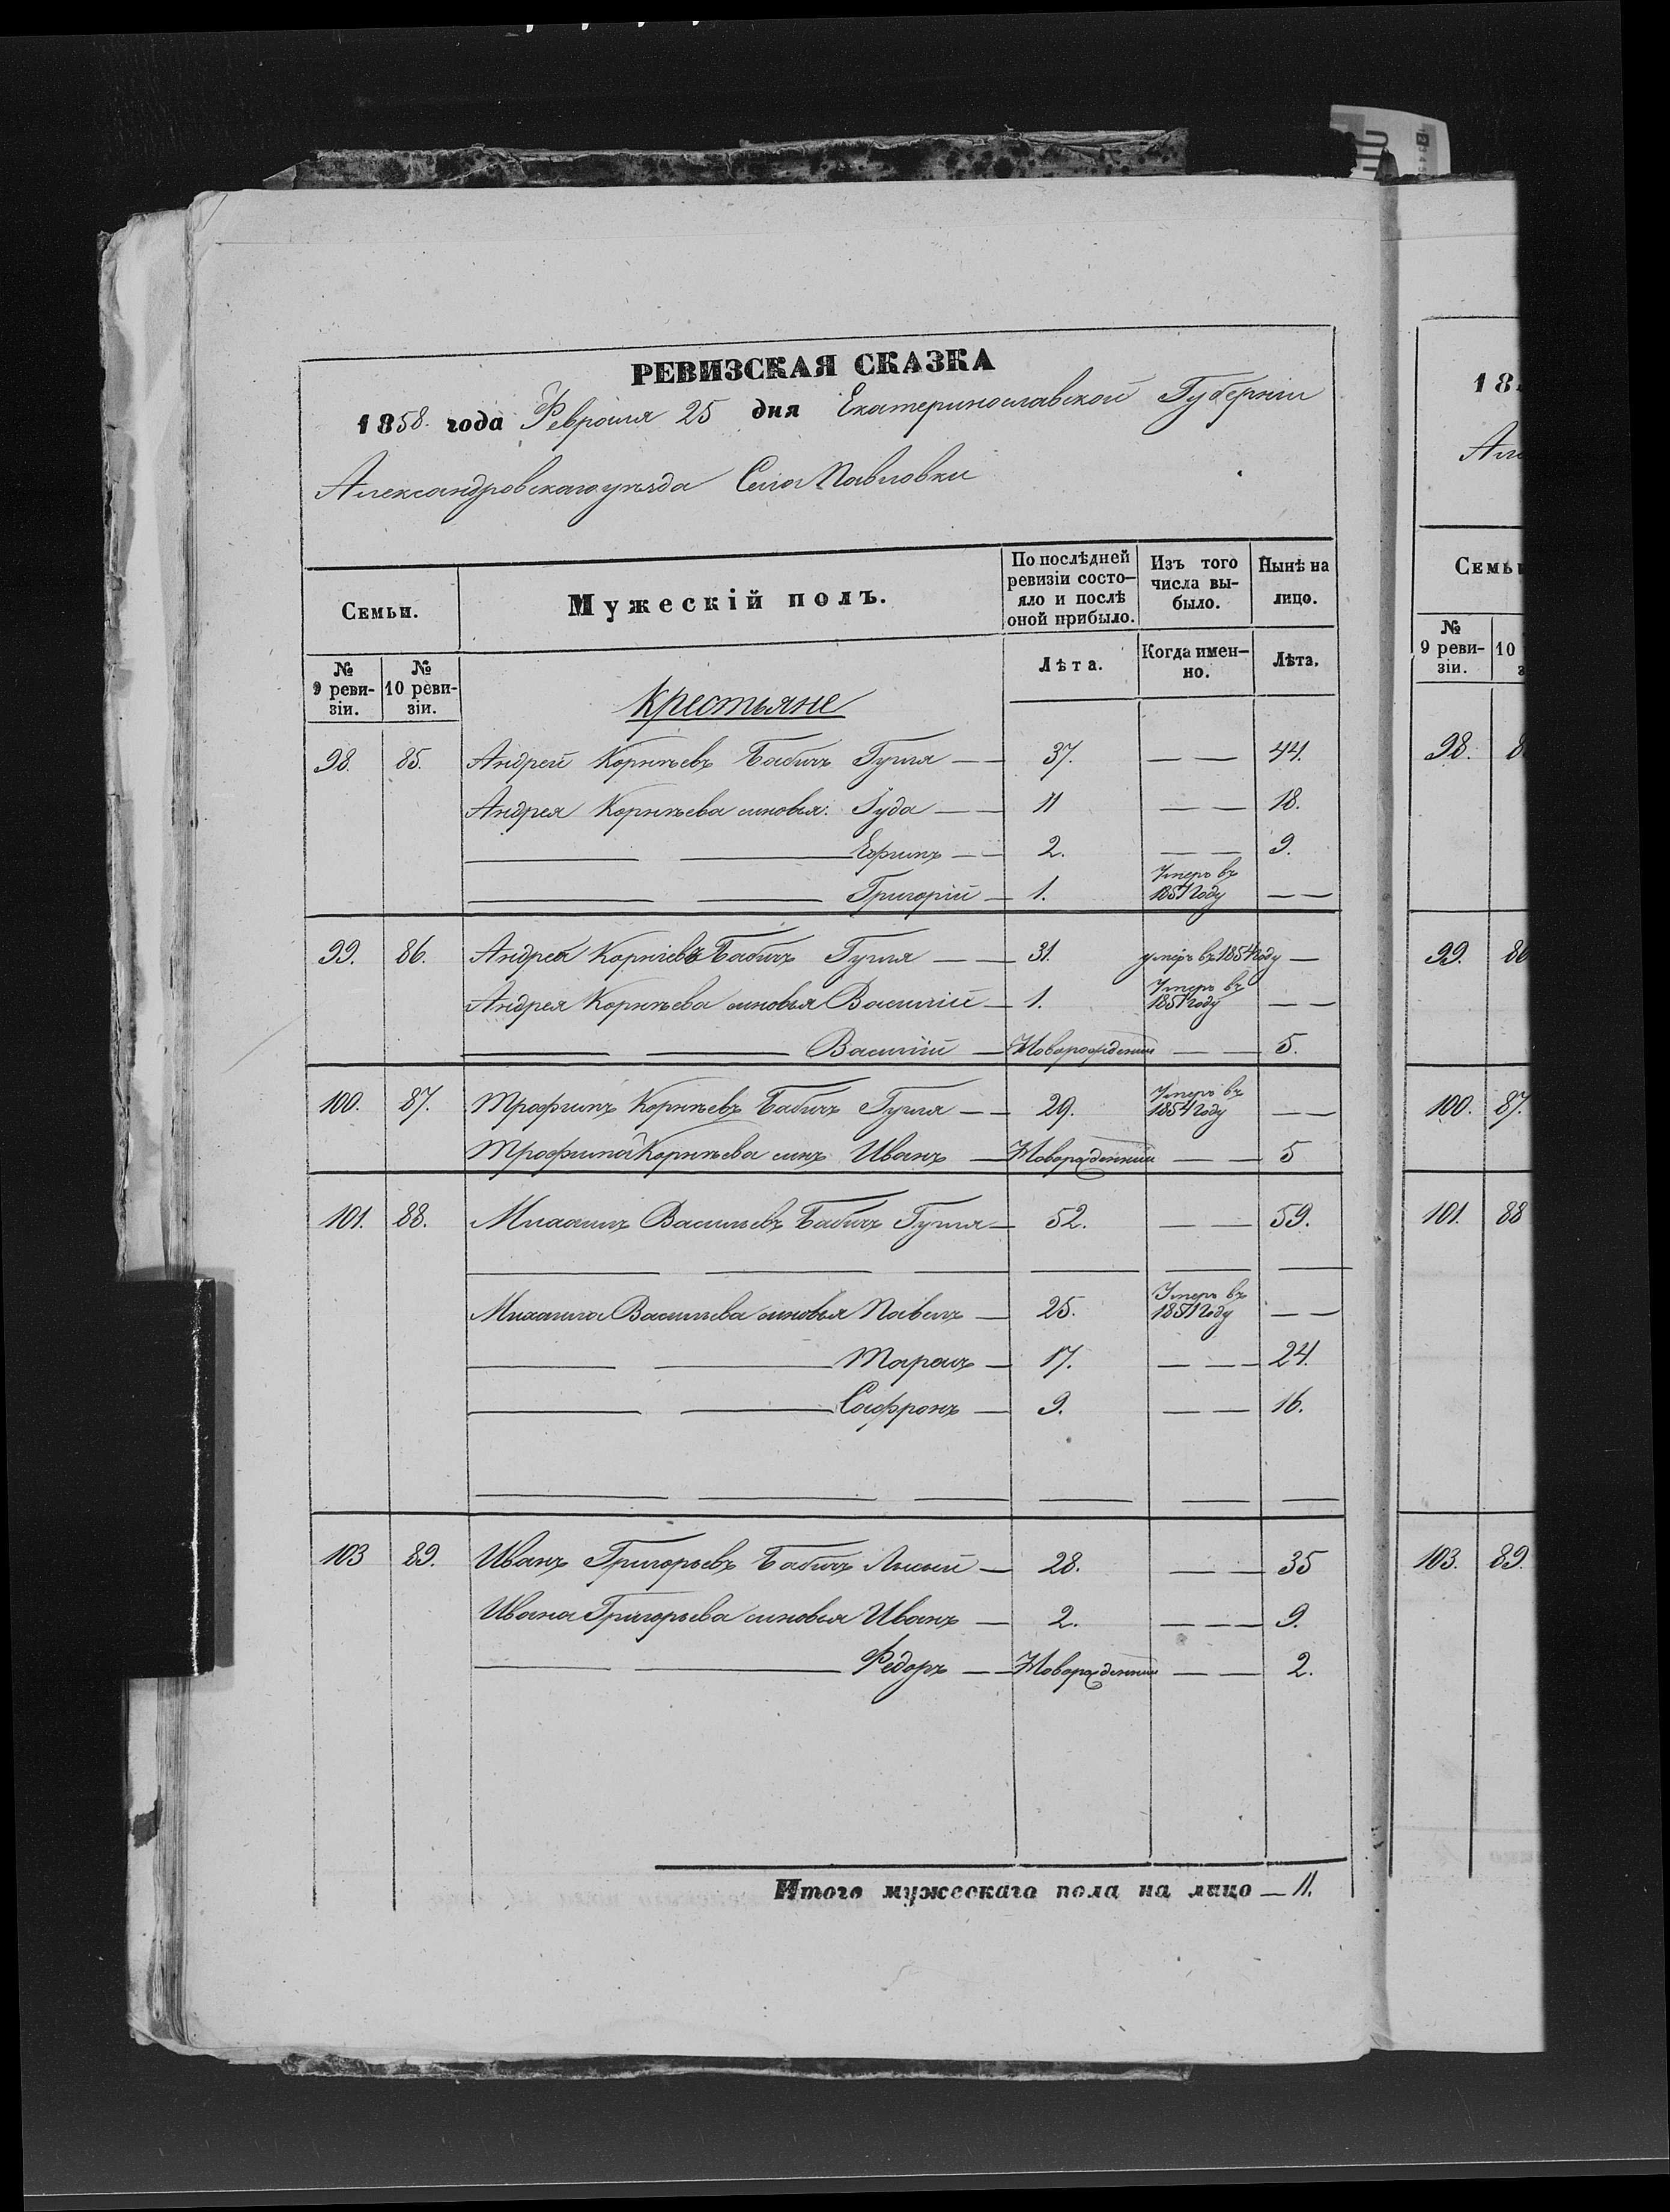 РЕВИЗСКАЯ СКАЗКА
1858. года Февраля 25 дня Екатеринославской Губерніи
Александровскаго уѣзда Села Павловки
Семьи.
Мужескій полъ.
По послѣдней ревизіи состо-яло и послѣ оной прибыло.
Изъ того числа вы-было.
Нынѣ на лицо.
№ 9 реви-зіи.
№ 10 реви-зіи.
Лѣта.
Когда имен-но.
Лѣта.
Крестьяне
98. 85. Андрей Корнѣевъ Бабичъ Гугля — — 37. — — 44.
Андрея Корнѣева сыновья: Іуда — — 11 — — 18.
Ефимъ — — 2. — — 9.
Григорій — 1. Умеръ въ 1857 году — —
99. 86. Андрей Корніевъ Бабичъ Гугля — — 31. умеръ въ 1854 году —
Андрея Корнѣева сыновья Василій — 1. Умеръ въ 1851 году — —
Василій — Новорожденный — — 5.
100. 87. Трофимъ Корнѣевъ Бабичъ Гугля — — 29. Умеръ въ 1854 году — —
Трофима Корнѣева сынъ Иванъ — Новорожденный — — 5
101. 88. Михаилъ Васильевъ Бабичъ Гугля — 52. — — 59.
Михаила Васильева сыновья Павелъ — 25. Умеръ въ 1851 году — —
Тарасъ — 17. — — 24.
Сафронъ — 9. — — 16.
103 89. Иванъ Григорьевъ Бабичъ Лысый — 28. — — 35
Ивана Григорьева сыновья Иванъ — 2. — — — 9.
Федоръ — — Новорожденный — — 2.
Итого мужескаго пола на лицо — 11.
18
Семьи
№ 9 реви-зіи.
10
98.
99. 86
100. 87.
101. 88
103. 89.